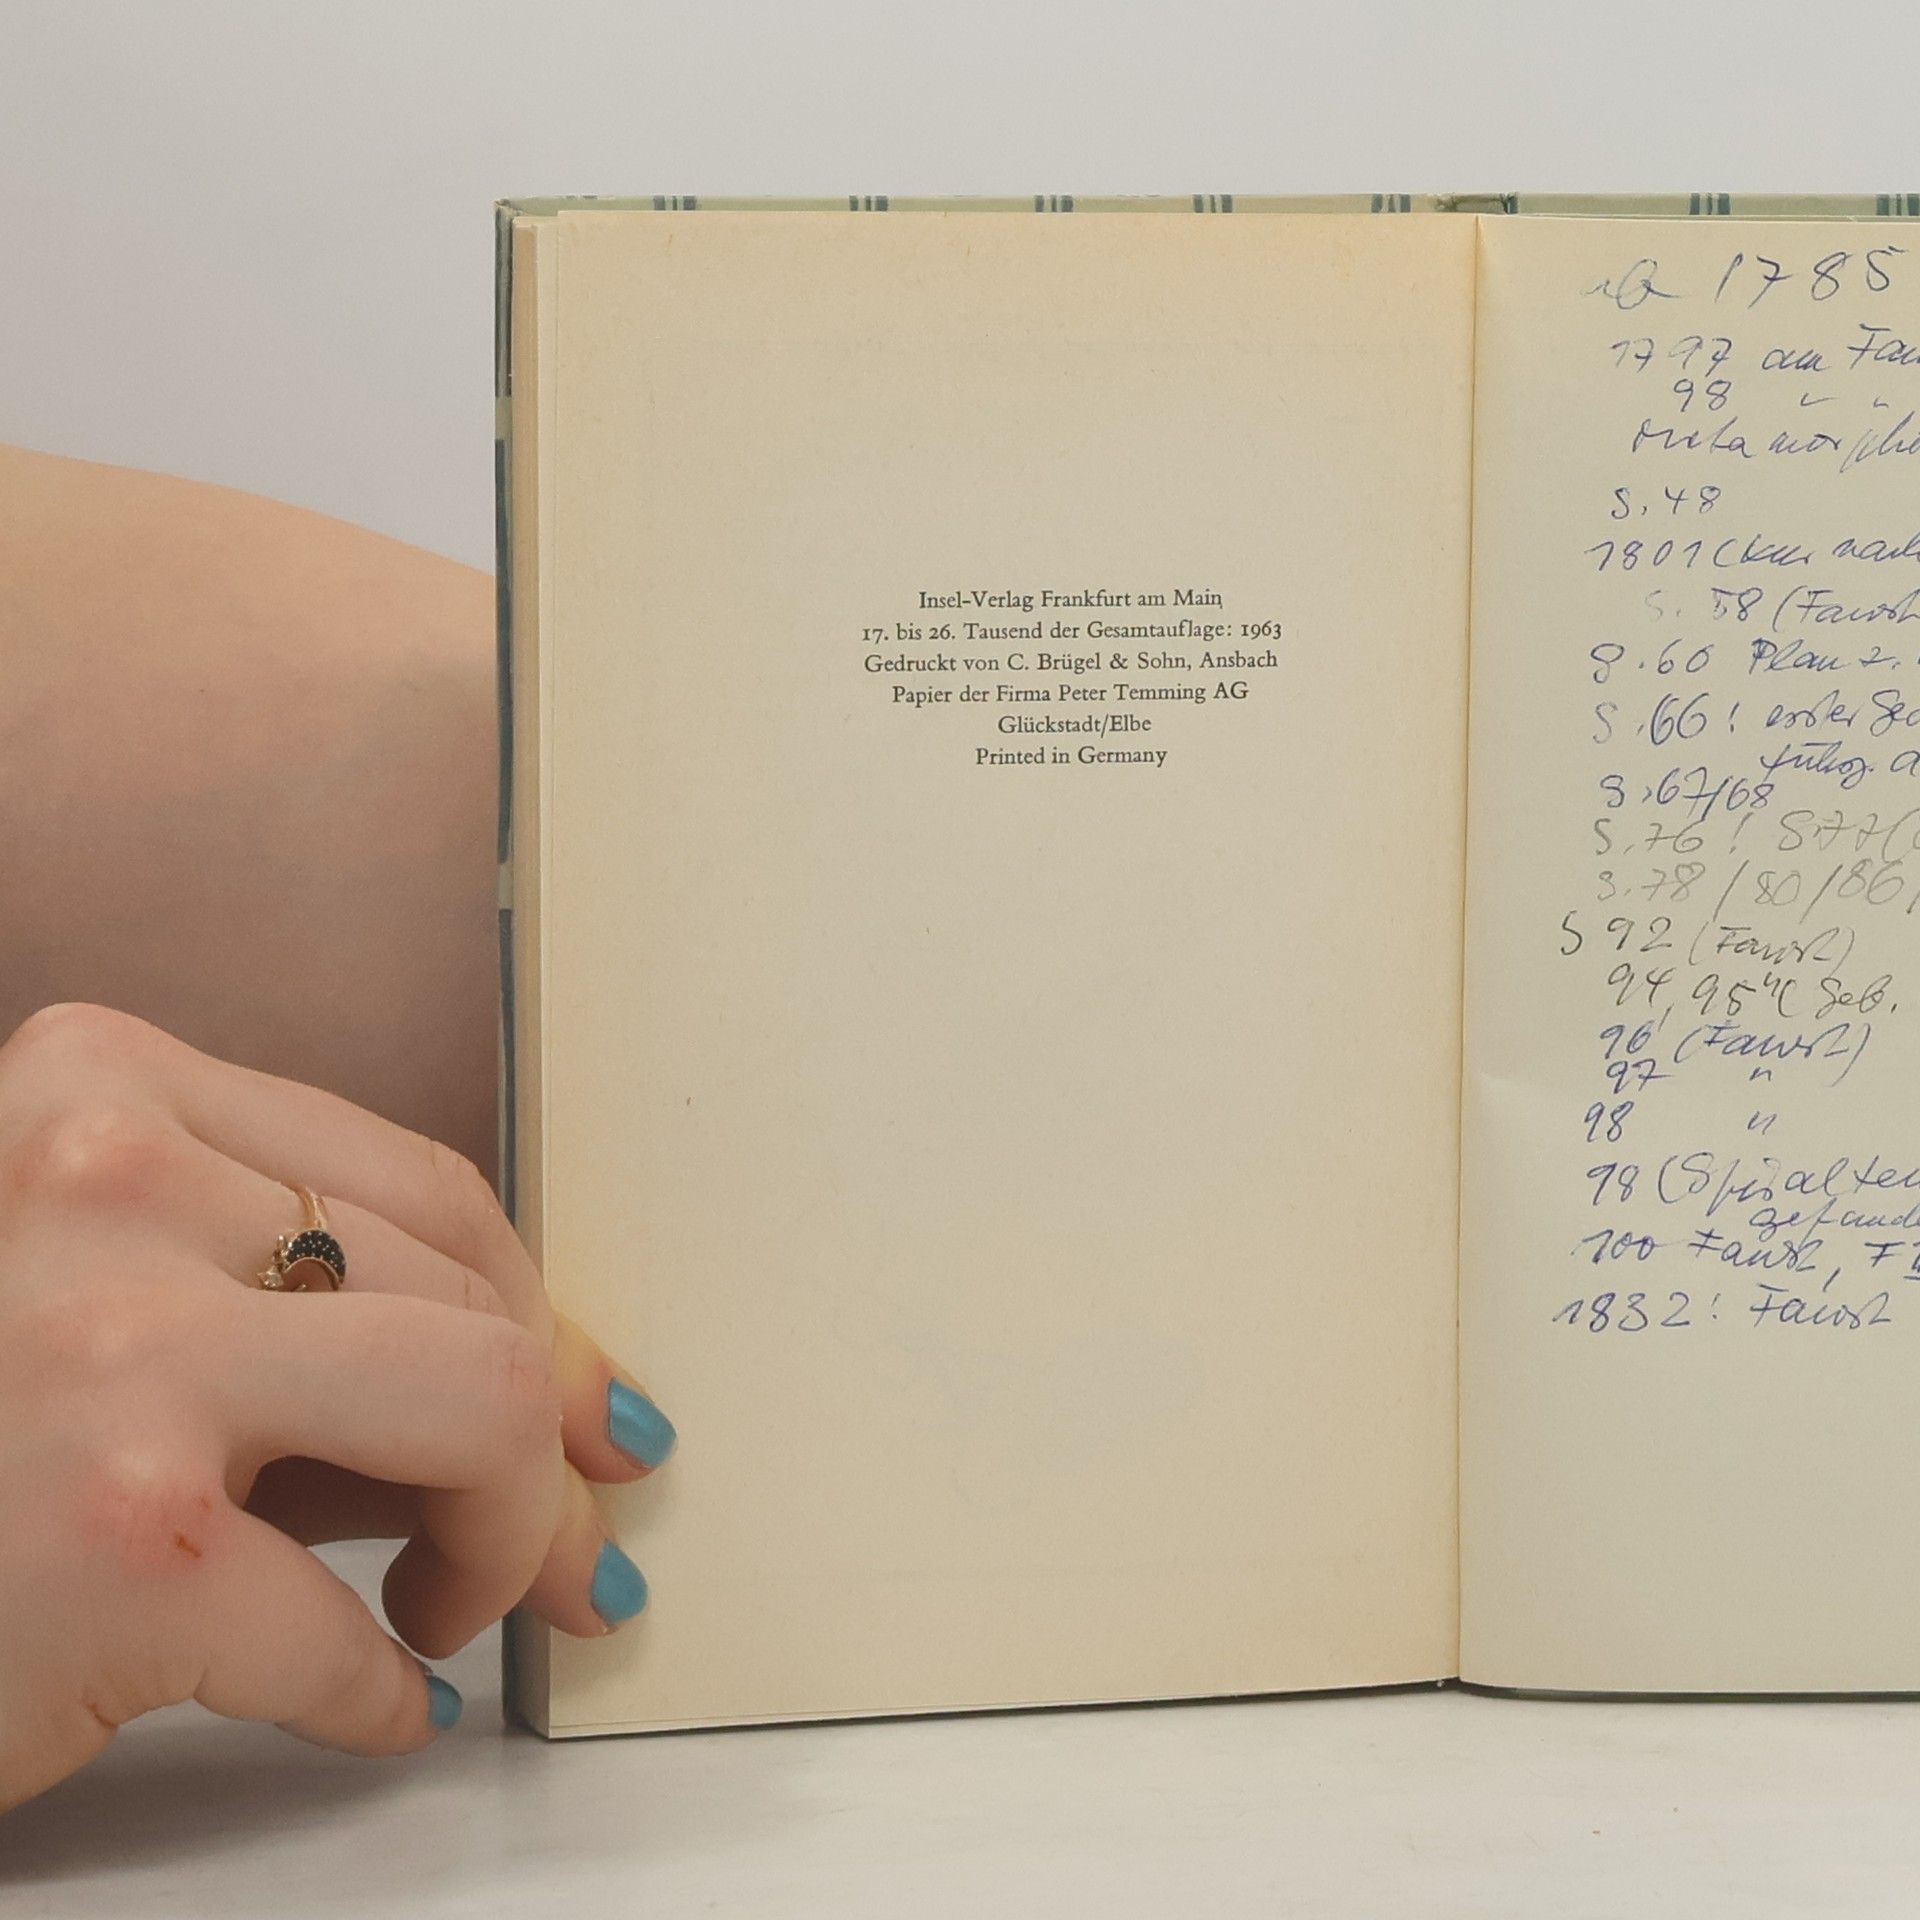 Insel-Verlag Frankfurt am Main
17. bis 26. Tausend der Gesamtauflage: 1963
Gedruckt von C. Brügel & Sohn, Ansbach
Papier der Firma Peter Temming AG
Glückstadt/Elbe
Printed in Germany
1785
1797 am
98 " "
S. 48
1801 (
S. 58 (Faust
S. 60 Plan z.
S. 66! erster
S. 67/68
S. 76! S. 77 (
S. 78 / 80 / 86 /
S 92 (Faust)
94, 95 "
96 (Faust)
97 "
98 "
98 (
100 Faust, F
1832! Faust